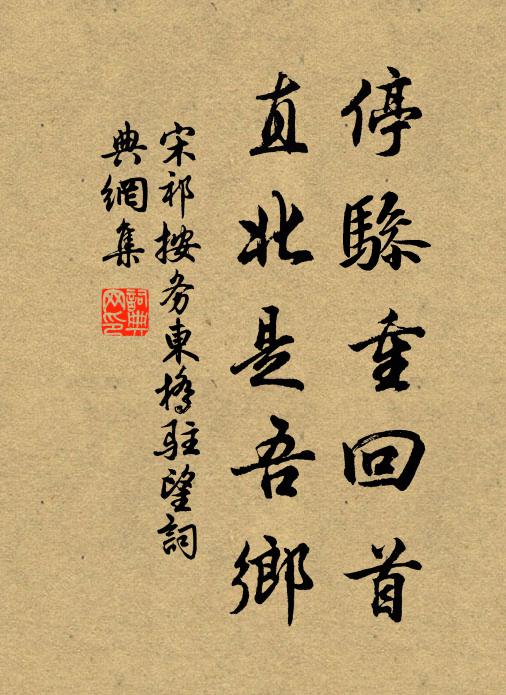 停骖重回首
直北是吾鄉
宋祁按务東橋駐望詞
典網集
詞典
网印